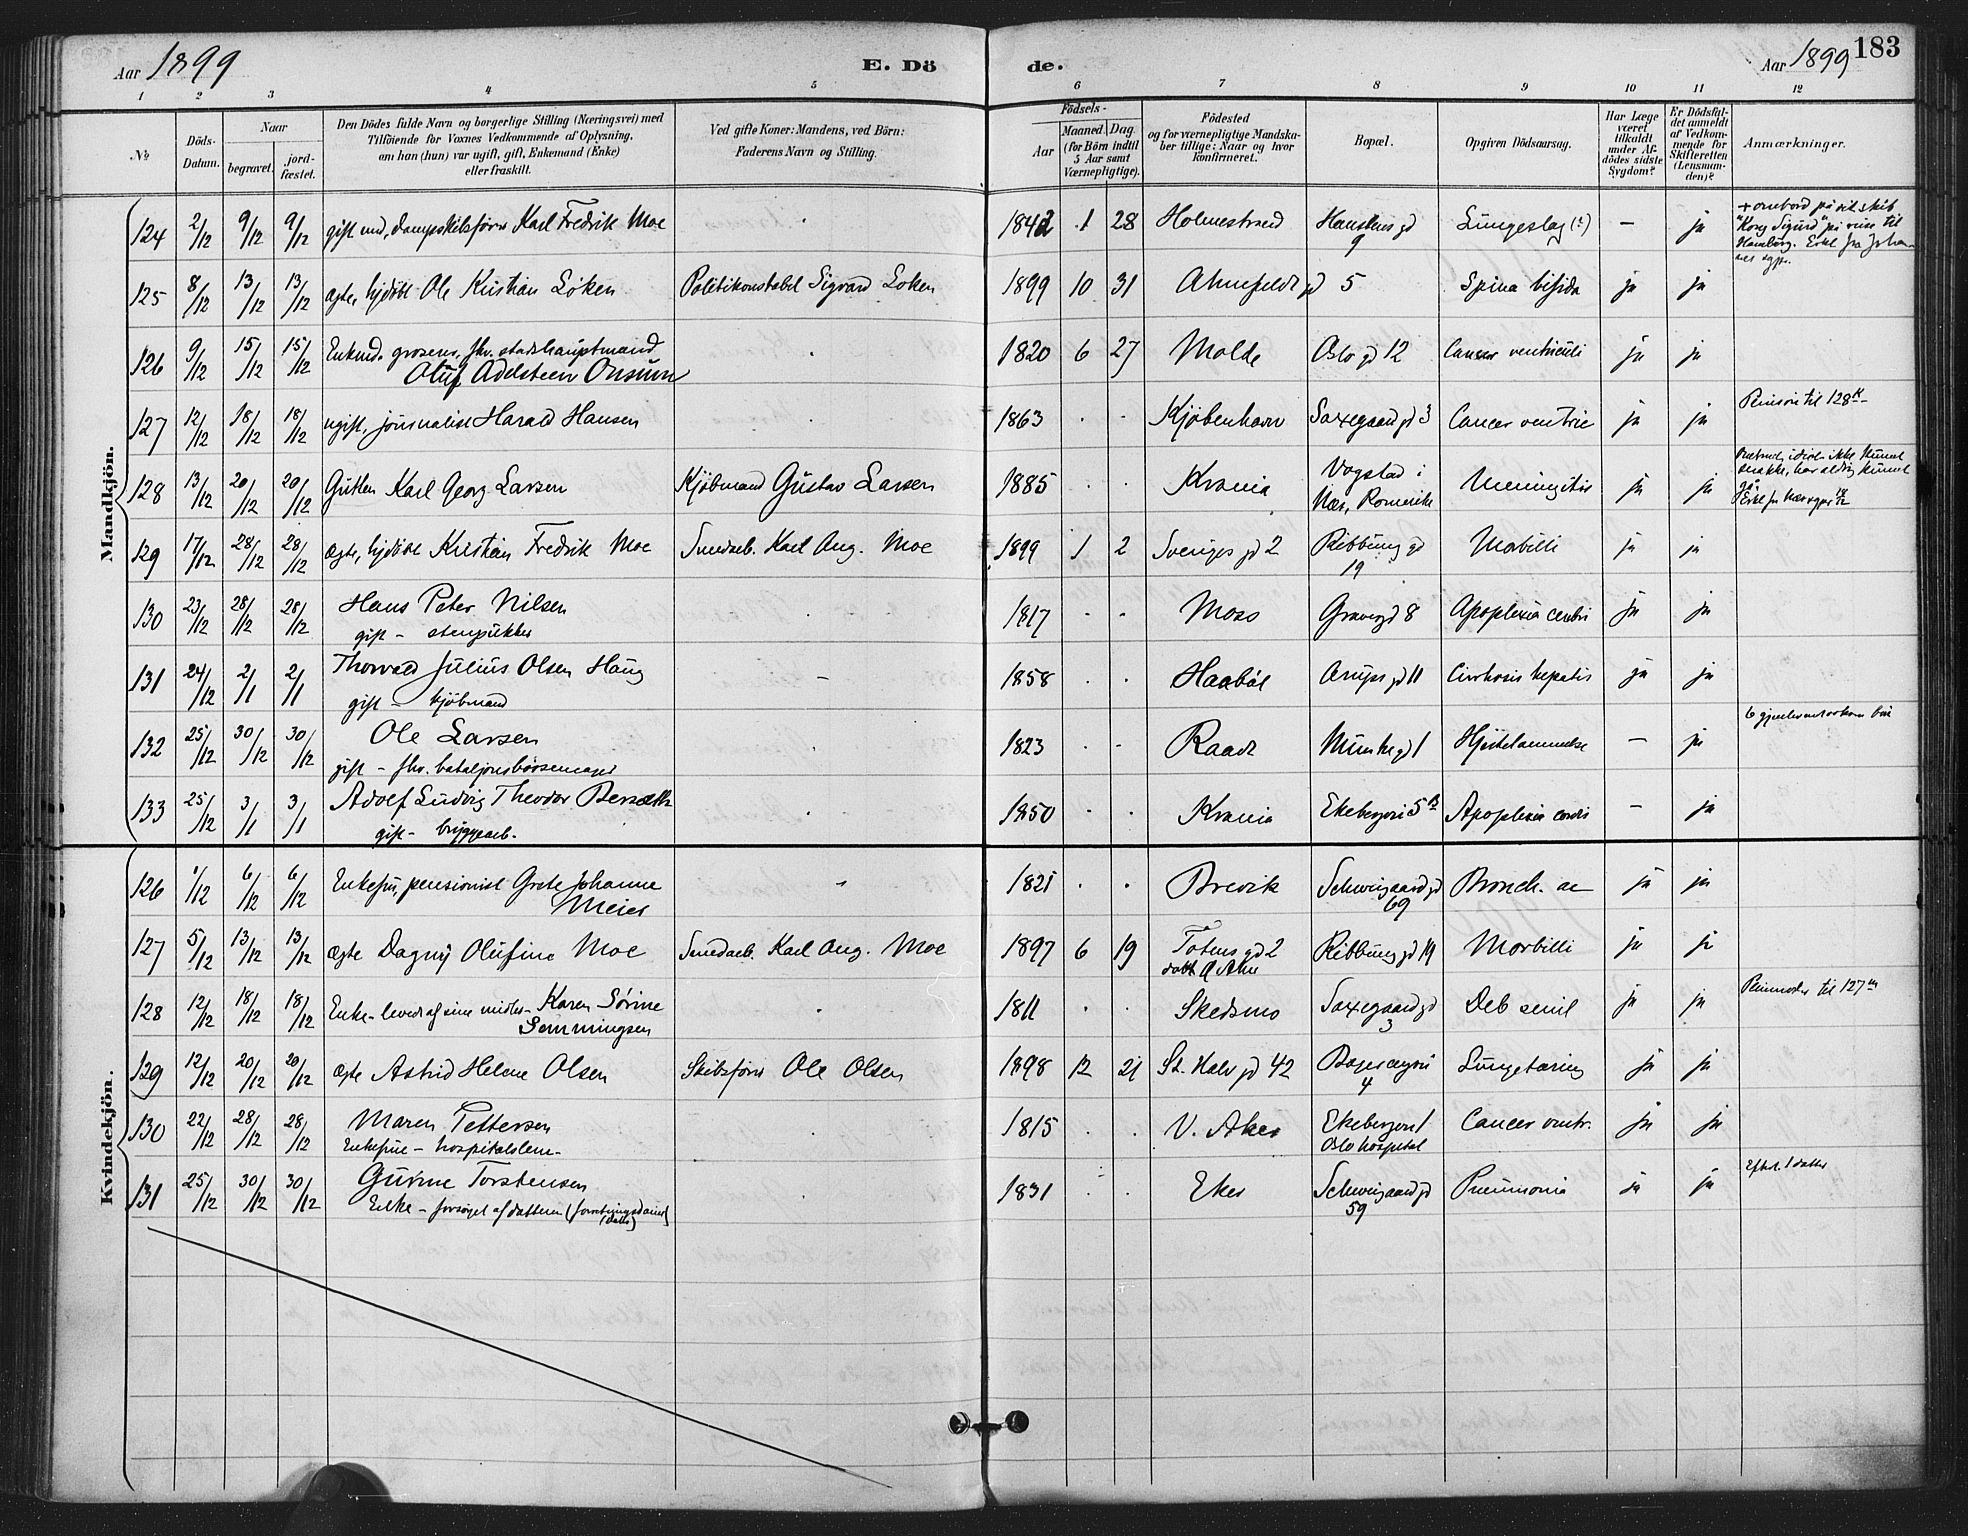 Aar 1899
E. Dö
de.
Aar 1899
183
1 2 3 4 5 6 7 8 9 10 11 12
No.
Döds-Datum.
Naar
begravet.
jord-fæstet.
Den Dödes fulde Navn og borgerlige Stilling (Næringsvei) med
Tilföiende for Voxnes Vedkommende af Oplysning,
om han (hun) var ugift, gift, Enkemand (Enke)
eller fraskilt.
Ved gifte Koner: Mandens, ved Börn:
Faderens Navn og Stilling.
Födsels-
Aar
Maaned. Dag.
(for Börn indtil
5 Aar samt
Værnepligtige).
Födested
og for værnepligtige Mandska-
ber tillige: Naar og hvor
konfirmeret.
Bopæl.
Opgiven Dödsaarsag.
Har Læge
været
tilkaldt
under Af-
dödes sidste
Sygdom?
Er Dödsfal-
det anmeldt
af Vedkom-
mende for
Skifteretten
(Lensman-
den)?
Anmærkninger.
Mandkjön.
124 2/12 9/12 9/12 gift md, dampskibsfører Karl Fredrik Moe 1842 1 28 Holmestrand 9 Lungeslag (?) — ja
+ ombord på sit skib
"Kong Sigurd" på reise til
Hamburg.
125 8/12 13/12 13/12 ægte, hjdöbt Ole Kristian Löken Politikonstabel Sigvard Löken 1899 10 31 Ahnefeldt gd 5 Spina bifida ja ja
126 9/12 15/12 15/12 Enkmd. grosserer, fhv. stadshauptmand
Oluf Adelsteen Onsum 1820 6 27 Molde Oslo gd 12 Cancer ventriculi ja ja
127 12/12 18/12 18/12 ugift, journalist Harald Hansen 1863 Kjøbenhavn Saxegaard gd 3 Cancer ventric ja ja
til 128
128 13/12 20/12 20/12 Gutten Karl Georg Larsen Kjöbmand Gustav Larsen 1885 Krania Vogstad i
Næs, Romerike Meningitis ja ja
129 17/12 28/12 28/12 ægte, hjdöbt Kristian Fredrik Moe Smedarb. Karl Aug. Moe 1899 1 2 Sveriges gd 2 Ribbung gd
19 Morbilli ja ja
130 23/12 28/12 28/12 Hans Peter Nilsen
gift – stenpukker 1817 Moss Gravergd 8 Apoplexia cerebri ja ja
131 24/12 2/1 2/1 Thorvald Julius Olsen Haug
gift – kjöbmand 1858 Haaböl Arups gd 11 Cirrhosis hepatis ja ja
132 25/12 30/12 30/12 Ole Larsen
gift – fhv. bataljonsbössemager 1823 Raade Munkegd 1 Hjertelammelse — ja
133 25/12 3/1 3/1 Adolf Ludvig Theodor
gift – bryggearb. 1850 Krania Ekebergvei 5 B Apoplexia cordis — ja
Kvindekjön.
126 1/12 6/12 6/12 Enkefru, pensionist Grete Johanne
Meier 1821 Brevik Schweigaard gd
69 Bronch. ac ja ja
127 5/12 13/12 13/12 ægte Dagny Olufine Moe Smedarb. Karl Aug. Moe 1897 6 19 Totens gd 2
döbt Ribbung gd 19 Morbilli ja ja
128 12/12 18/12 18/12 Enke – levede af sine midler – Karen Sörine
Semmingsen 1811 Skedsmo Saxegaard gd
3 Deb senil ja ja
til 127
129 12/12 20/12 20/12 ægte Astrid Helene Olsen Skibsförer Ole Olsen 1898 12 21 St. Halv gd 42
4 Lungetæring ja ja
130 22/12 28/12 28/12 Maren Pettersen
Enkefrue – hospitalslem – 1815 V. Aker Ekebergvei 1
Oslo hospital Cancer ventr. ja ja
131 25/12 30/12 30/12 Gurine Torstensen
Enke – forsörget af datteren 1831 Eker Schweigaard gd
59 Pneumonia ja ja
Efterl. 1 datter